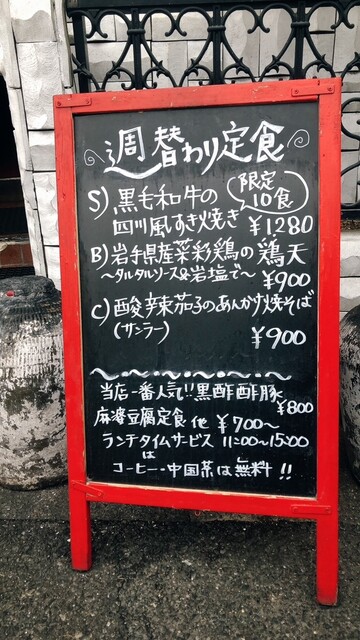 週替わり定食
S)黒毛和牛の
限定
10食
四川風すき焼き ¥1,280
B)岩手県産菜彩鶏の鶏天
〜タルタルソース&岩塩で〜 ¥900
C)酸辣茄子のあんかけ焼そば
(サンラー)
¥900
当店一番人気!!黒酢酢豚
¥800
麻婆豆腐定食 他 ¥700〜
ランチタイムサービス 11:00〜15:00
は
コーヒー・中国茶は無料!!